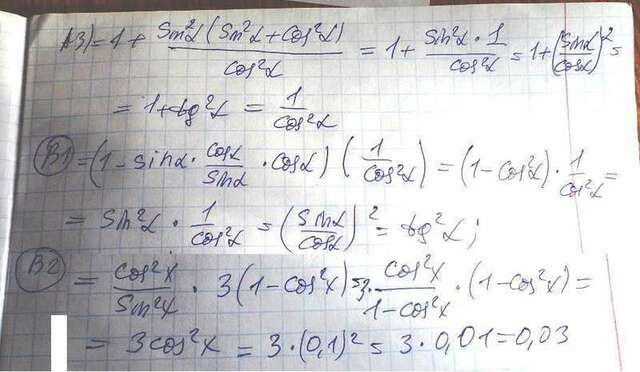 A3) = 1 + \frac{sin²α (sin²α + cos²α)}{cos²α} = 1 + \frac{sin²α · 1}{cos²α} = 1 + (\frac{sinα}{cosα})² =
= 1 + tg²α = \frac{1}{cos²α}
B1) = (1 - sinα · \frac{cosα}{sinα} · cosα) (\frac{1}{cos²α}) = (1 - cos²α) · \frac{1}{cos²α} =
= sin²α · \frac{1}{cos²α} = (\frac{sinα}{cosα})² = tg²α;
B2) = \frac{cos²x}{sin²x} · 3(1 - cos²x) = 3 · \frac{cos²x}{1 - cos²x} · (1 - cos²x) =
= 3cos²x = 3 · (0,1)² = 3 · 0,01 = 0,03